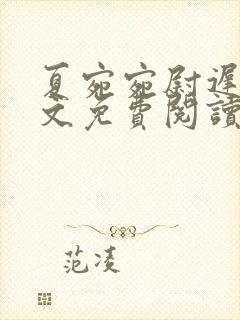 夏宛宛尉遲
文免費閱讀
范凌